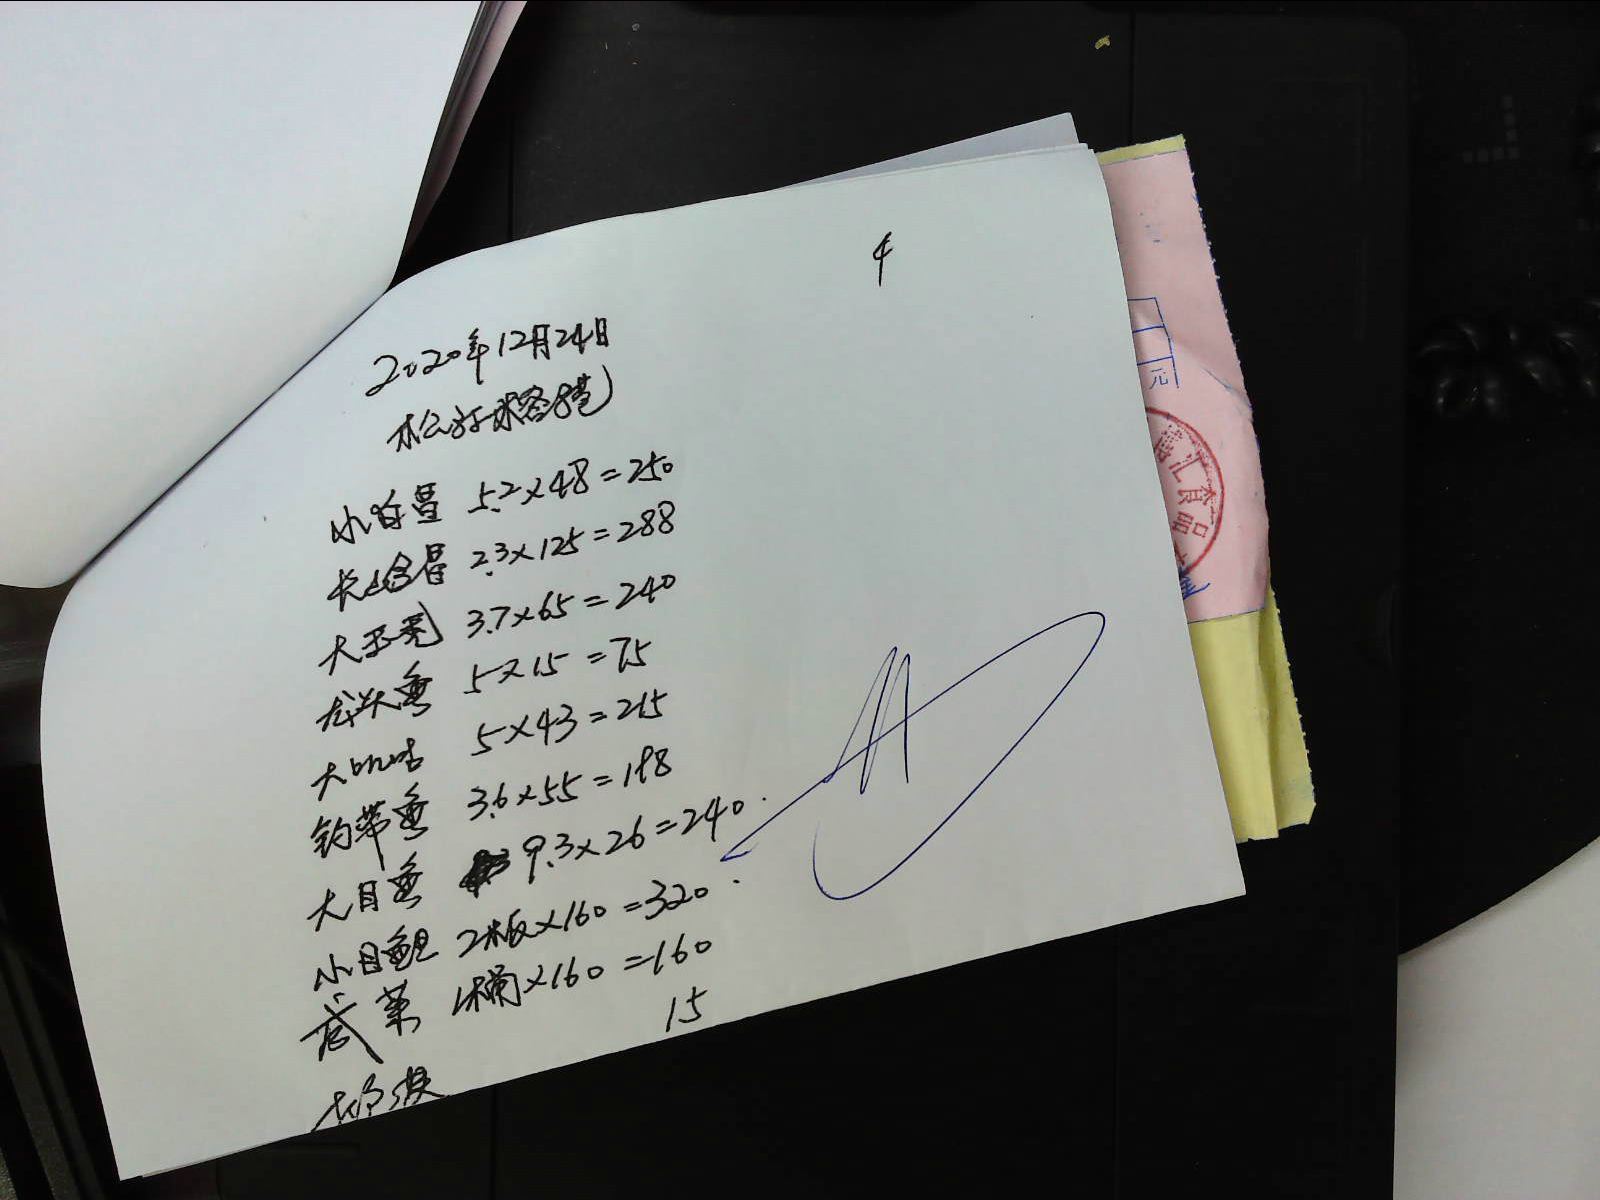 4
2020年12月24日
小白昌 5.2×48=250
2.3×125=288
大 3.7×65=240
龙头鱼 5×15=75
大 5×43=215
钓带鱼 3.6×55=198
大目鱼 9.3×26=240.
小目鱼 2板×160=320.
咸菜 1桶×160=160
15
元
汇食品